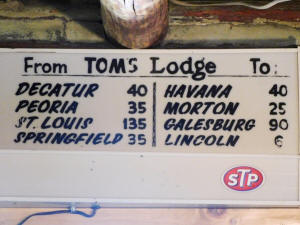 From TOMS Lodge To:
DECATUR 40 HAVANA 40
PEORIA 35 MORTON 25
ST. LOUIS 135 GALESBURG 90
SPRINGFIELD 35 LINCOLN 6
STP